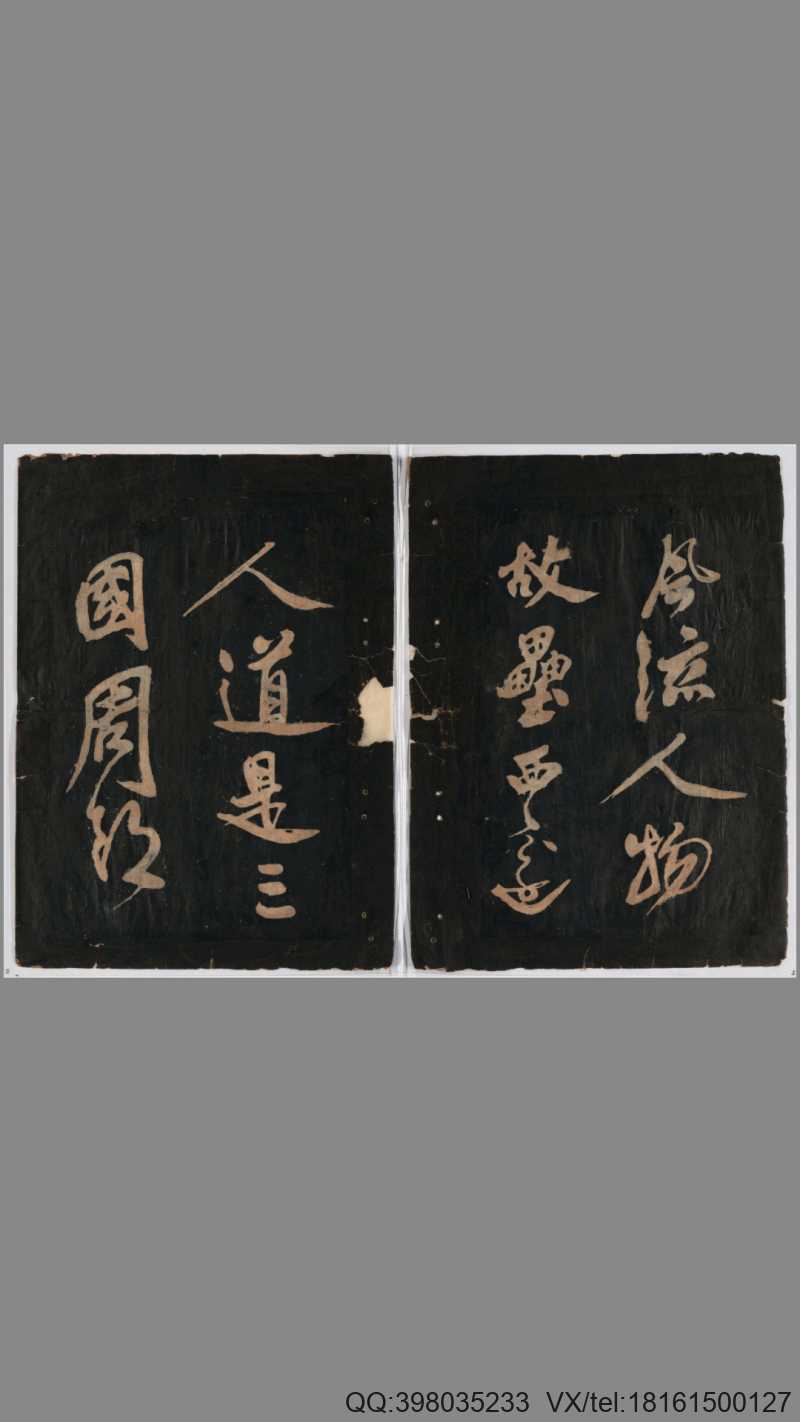 風流人物
故壘西邊
人道是三
國周郎
QQ:398035233 VX/tel:18161500127